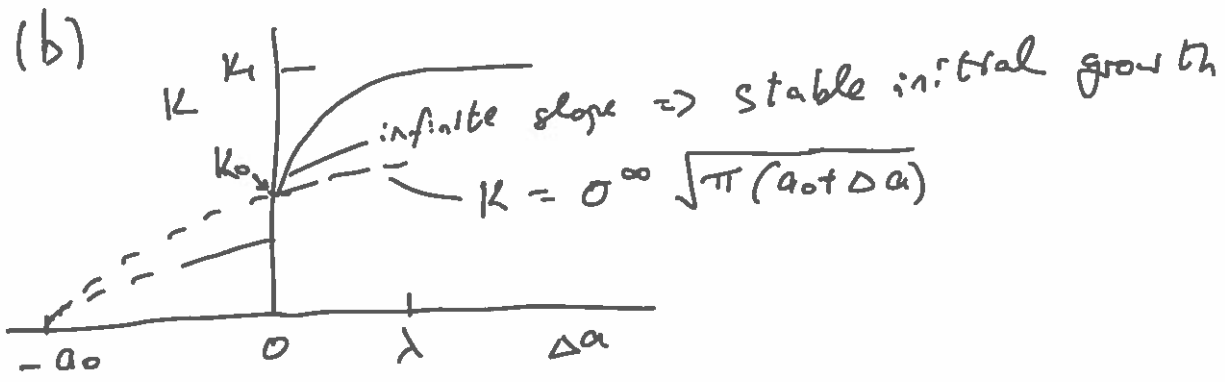 (b)
K₁
K
infinite slope => stable initial growth
K₀
K = σ^∞ √(π(a₀+Δa))
-a₀ 0 λ Δa